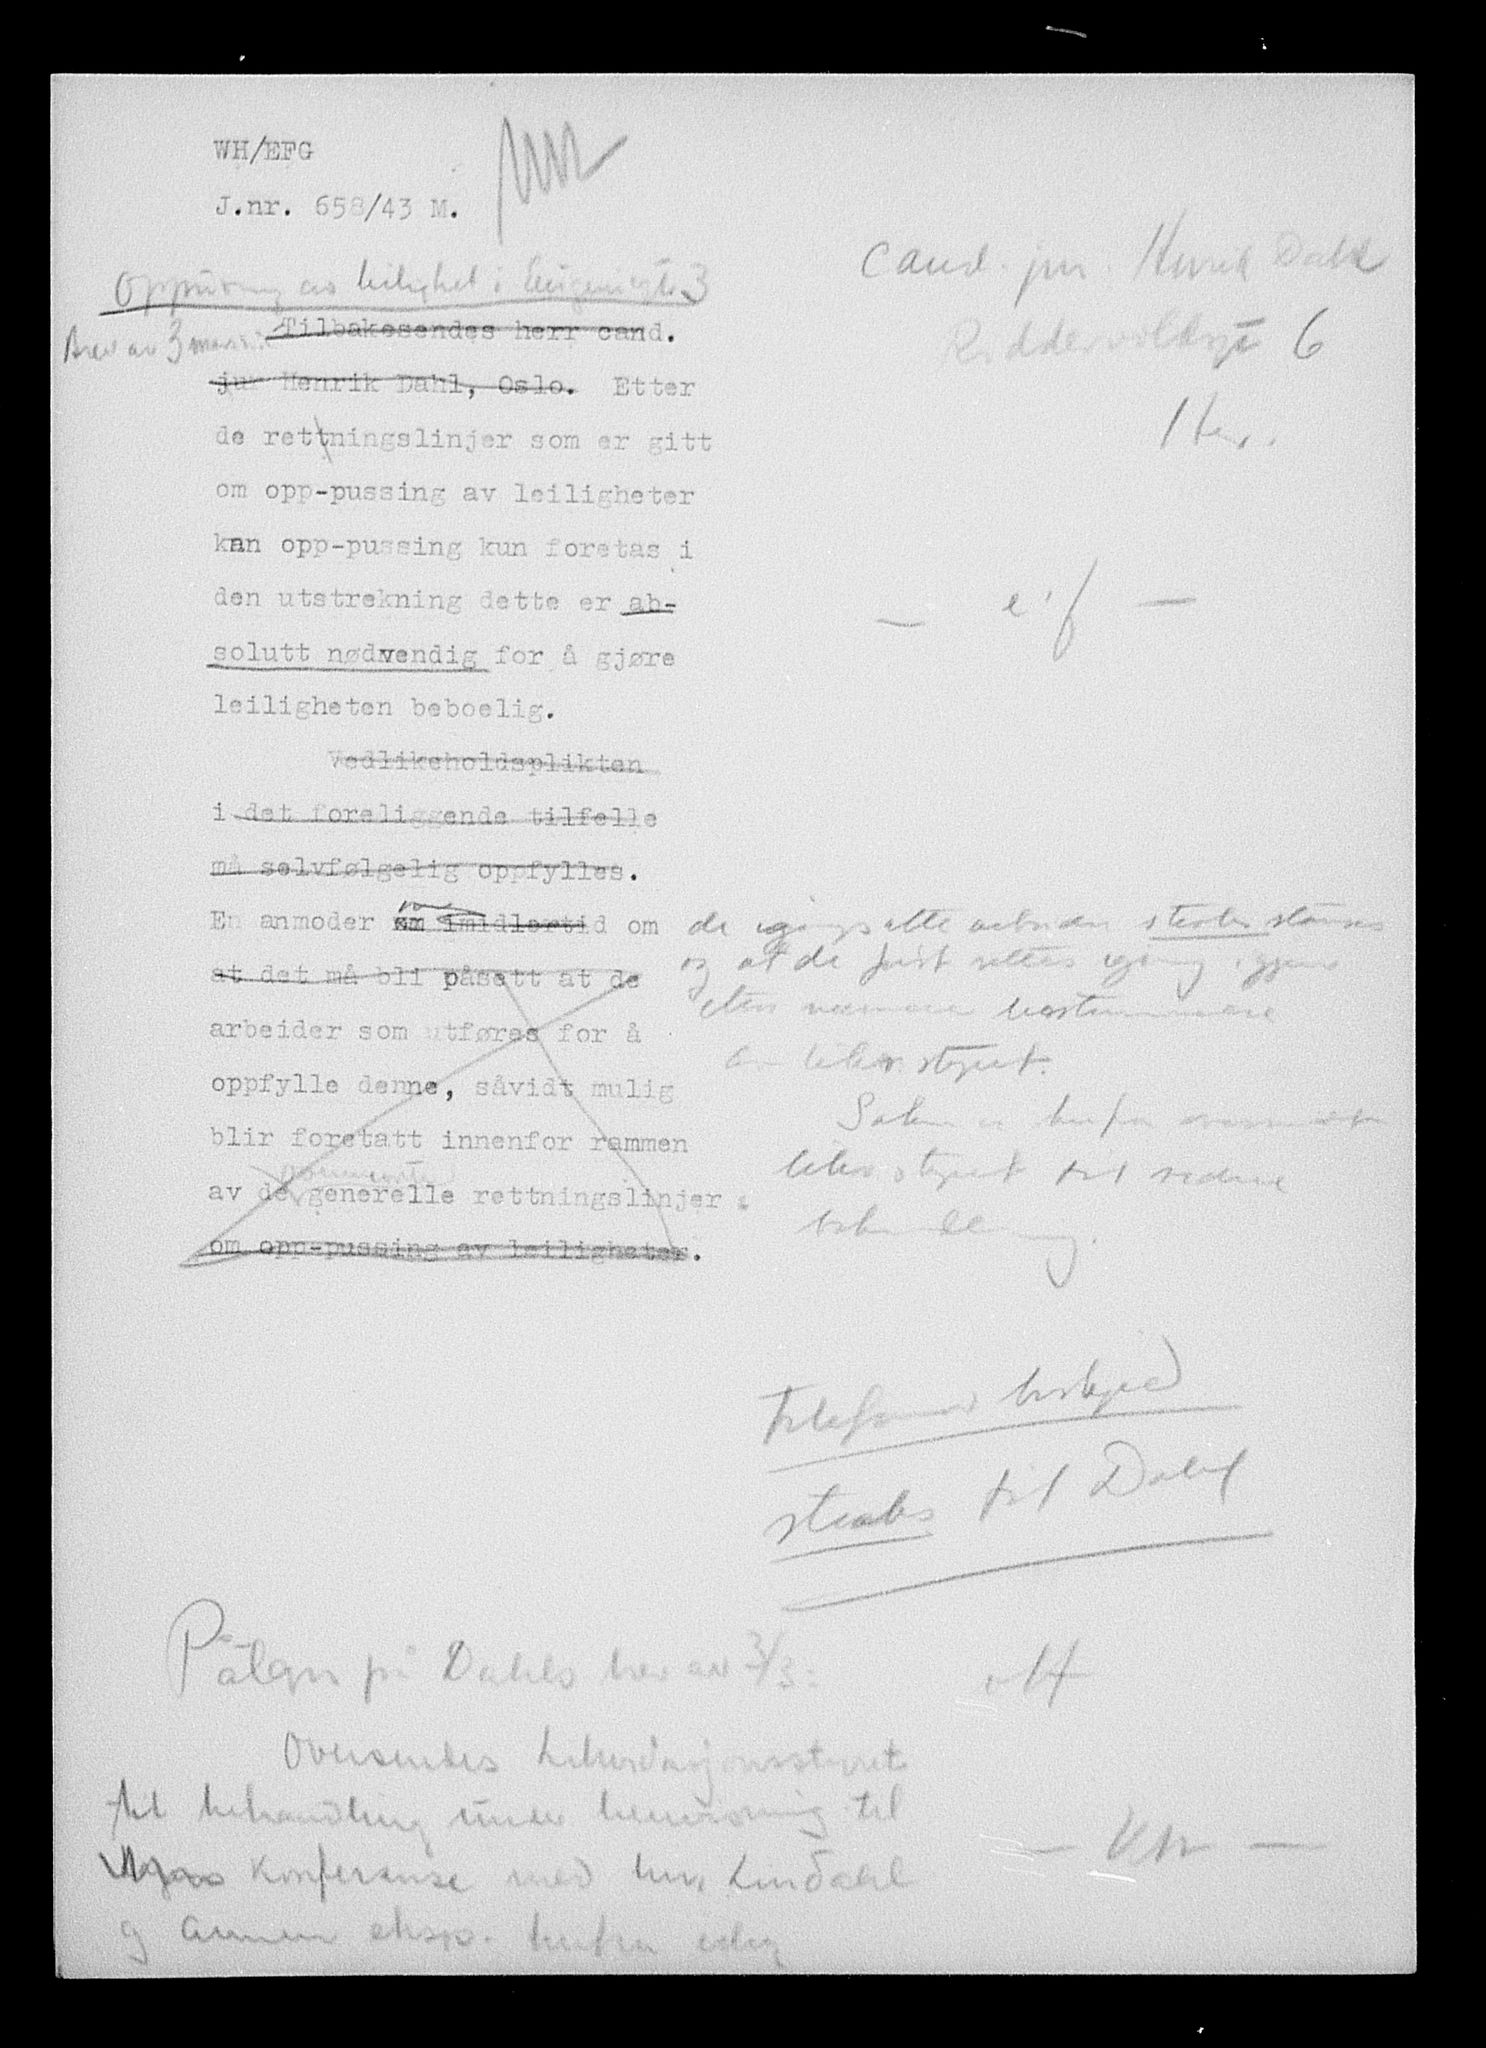 WH/EFG
J.nr. 658/43 M.
cand. jur. Henrik Dahl
Riddervoldsgt 6
Her.
Oppussing av leilighet i Eugeniesgt. 3
Brev av 3 mars
Tilbakesendes herr cand.
jur Henrik Dahl, Oslo. Etter
de rettningslinjer som er gitt
om opp-pussing av leiligheter
kan opp-pussing kun foretas i
den utstrekning dette er ab-
solutt nødvendig for å gjøre
leiligheten beboelig.
Vedlikeholdsplikten
i det foreliggende tilfelle
må selvfølgelig oppfylles.
En anmoder em imidlertid om
at det må bli påsett at de
arbeider som utføres for å
oppfylle denne, såvidt mulig
blir foretatt innenfor rammen
av de generelle rettningslinjer
om opp-pussing av leiligheter.
de igangsatte arbeider straks stanses
og at de først settes igang igjen
etter nærmere bestemmelse
av likv. styret.
Saken er herfra oversendt
likv. styret til videre
behandling.
Telefonerer beskjed
straks til Dahl
Påtegn på Dahls brev av 3/3.
Oversendes Likvidasjonsstyret
til behandling under henvisning til
konferanse med herr Lindahl
og annen eksp. herfra idag